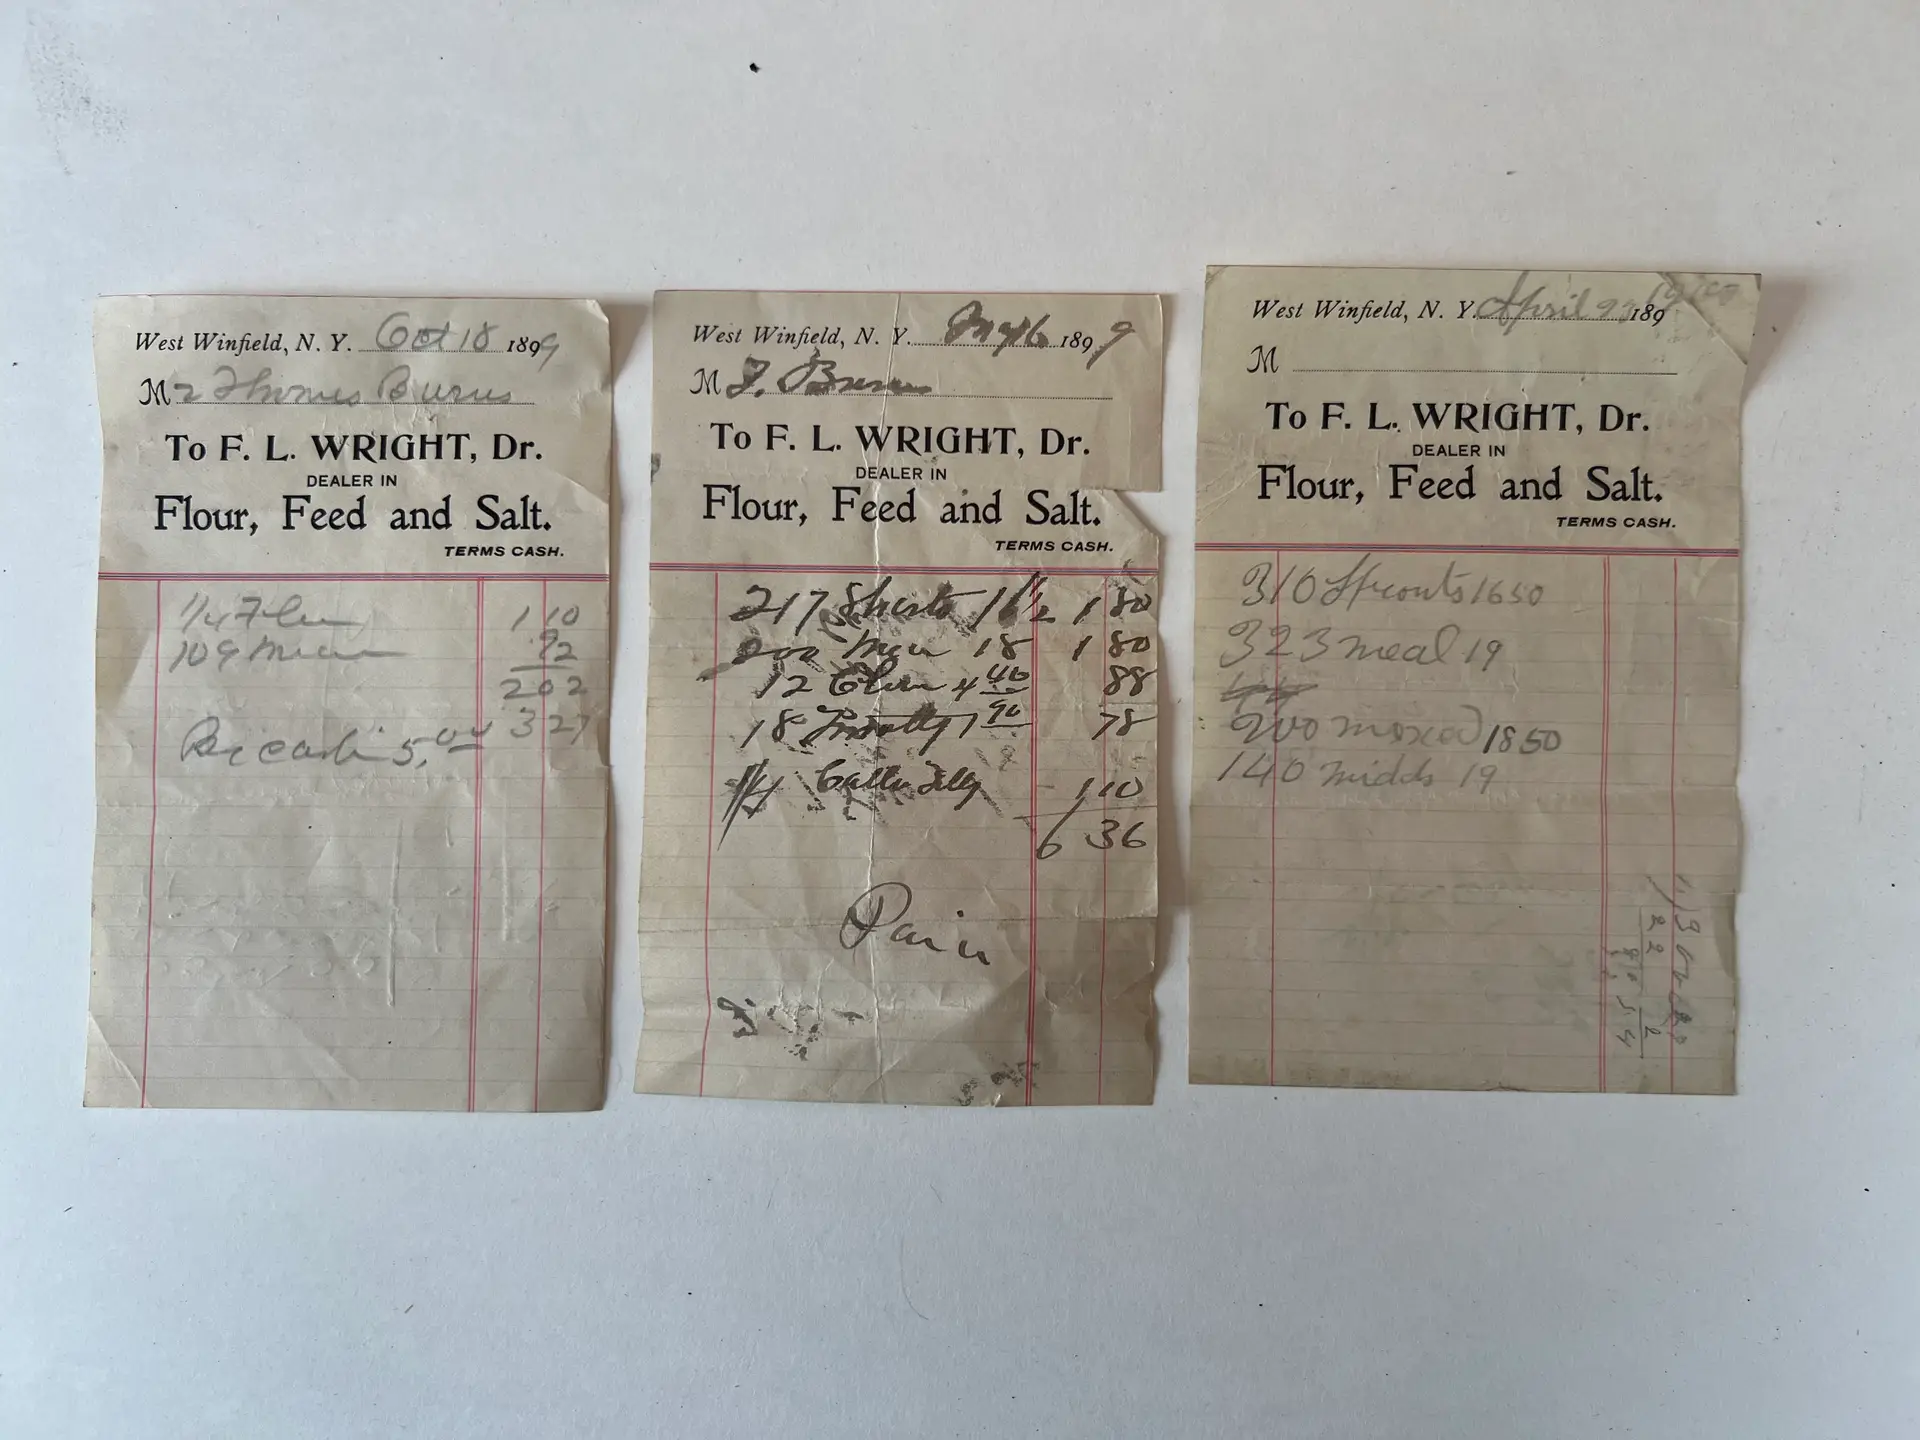 West Winfield, N. Y. Oct 18 1899
M r Thomas Burns
To F. L. WRIGHT, Dr.
DEALER IN
Flour, Feed and Salt.
TERMS CASH.
1/4 Flour 1 10
109 Meal 92
202
327
By cash 5.00
West Winfield, N. Y. 1899
M T. Burns
To F. L. WRIGHT, Dr.
DEALER IN
Flour, Feed and Salt.
TERMS CASH.
217 Shorts 16 1/2 1 80
200 Meal 18 1 80
12 4 40 88
18 1 90 78
1/4 1 10
6 36
Paid
West Winfield, N. Y. April 189
M
To F. L. WRIGHT, Dr.
DEALER IN
Flour, Feed and Salt.
TERMS CASH.
310 Sprouts 1650
323 meal 19
200 mixed 1850
140 midds 19